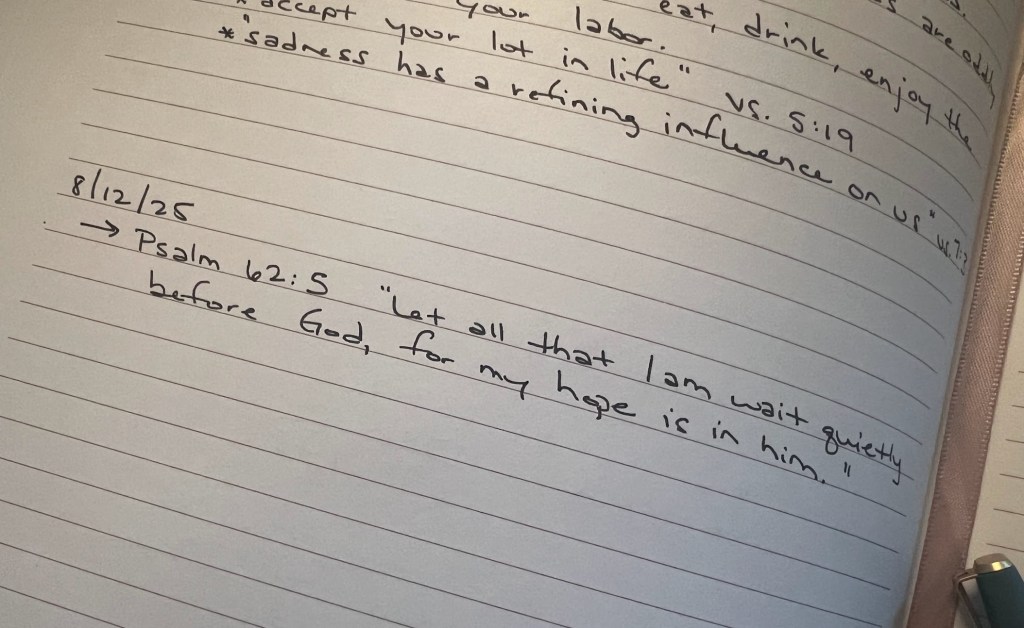 s are oddly
eat, drink, enjoy the
your labor."
* accept your lot in life" vs. 5:19
* "sadness has a refining influence on us" vs. 7:3
8/12/25
→ Psalm 62:5 "Let all that I am wait quietly
before God, for my hope is in him."